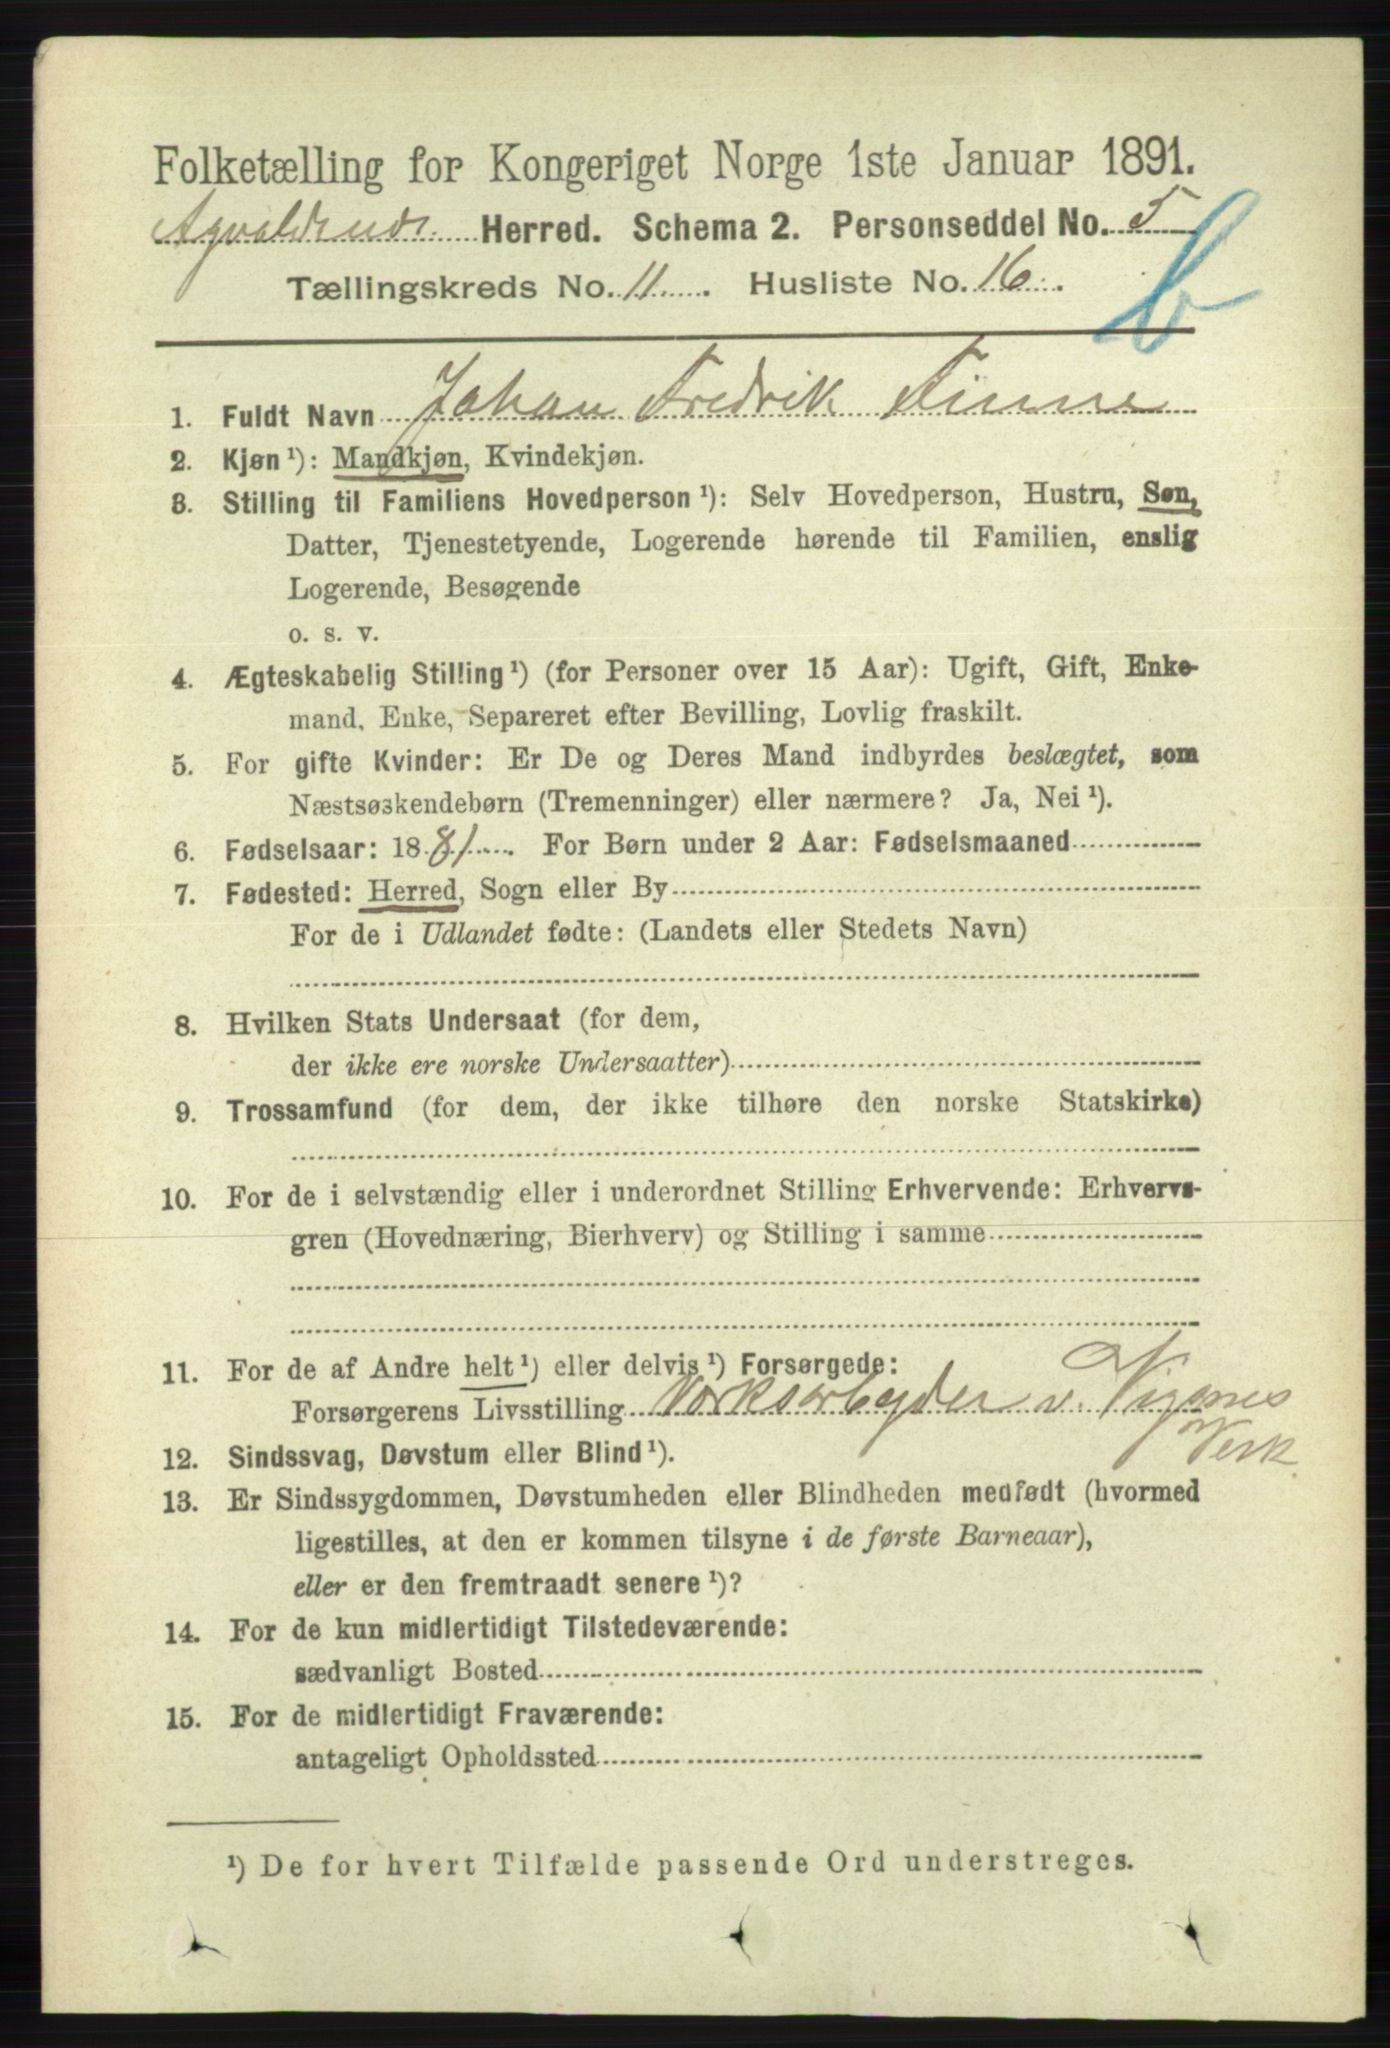 Folketælling for Kongeriget Norge 1ste Januar 1891.
Herred. Schema 2. Personseddel No. 5
b
Tællingskreds No. 11 . Husliste No. 16 .
1. Fuldt Navn Johan Fredrik Finne
2. Kjøn ¹): Mandkjøn, Kvindekjøn.
3. Stilling til Familiens Hovedperson ¹): Selv Hovedperson, Hustru, Søn,
Datter, Tjenestetyende, Logerende hørende til Familien, enslig
Logerende, Besøgende
o. s. v.
4. Ægteskabelig Stilling ¹) (for Personer over 15 Aar): Ugift, Gift, Enke-
mand, Enke, Separeret efter Bevilling, Lovlig fraskilt.
5. For gifte Kvinder: Er De og Deres Mand indbyrdes beslægtet, som
Næstsøskendebørn (Tremenninger) eller nærmere? Ja, Nei ¹).
6. Fødselsaar: 1881 . For Børn under 2 Aar: Fødselsmaaned
7. Fødested: Herred, Sogn eller By
For de i Udlandet fødte: (Landets eller Stedets Navn)
8. Hvilken Stats Undersaat (for dem,
der ikke ere norske Undersaatter)
9. Trossamfund (for dem, der ikke tilhøre den norske Statskirke)
10. For de i selvstændig eller i underordnet Stilling Erhvervende: Erhvervs-
gren (Hovednæring, Bierhverv) og Stilling i samme
11. For de af Andre helt ¹) eller delvis ¹) Forsørgede:
Forsørgerens Livsstilling v. Vigsnes
Verk
12. Sindssvag, Døvstum eller Blind ¹).
13. Er Sindssygdommen, Døvstumheden eller Blindheden medfødt (hvormed
ligestilles, at den er kommen tilsyne i de første Barneaar),
eller er den fremtraadt senere ¹)?
14. For de kun midlertidigt Tilstedeværende:
sædvanligt Bosted
15. For de midlertidigt Fraværende:
antageligt Opholdssted
¹) De for hvert Tilfælde passende Ord understreges.